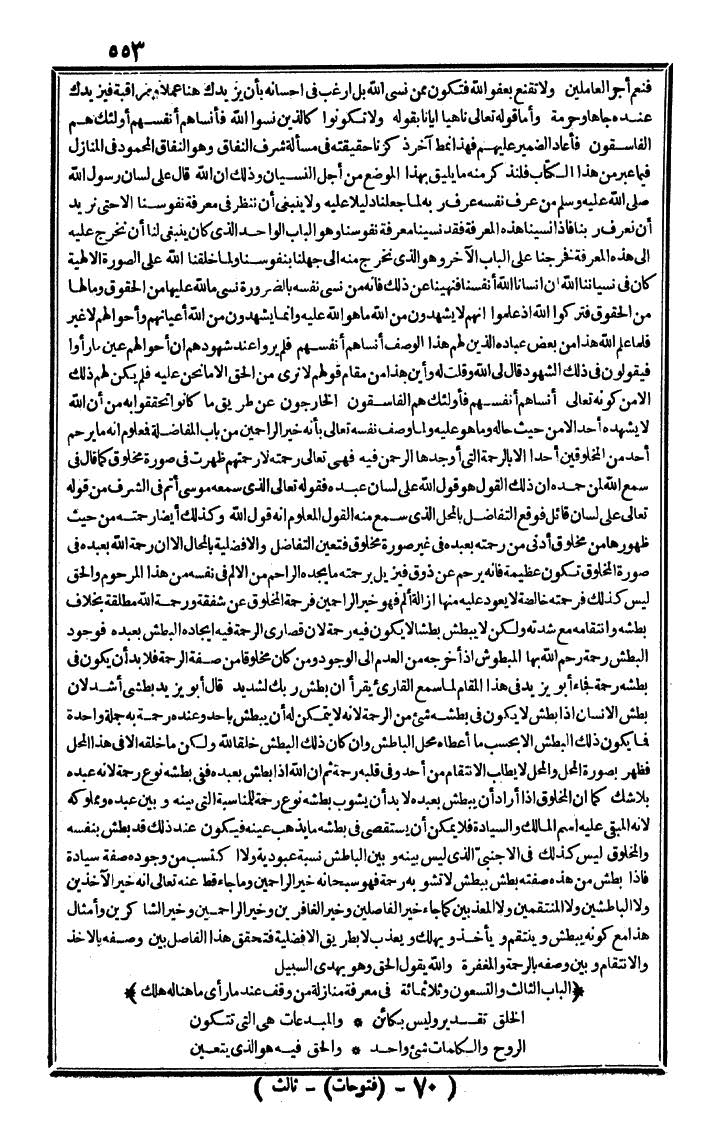 ٥٥٣
فنعم أجر العاملين ولا تقنع بعفو الله فتكون ممن نسى الله بل ارغب فى احسانه بأن يزيدك هنا عملا بمراقبة فيزيدك
عنده جاها وحرمة وأما قوله تعالى ناهيا ايانا بقوله ولا تكونوا كالذين نسوا الله فأنساهم أنفسهم أولئك هم
الفاسقون فأعاد الضمير عليهم فهذا نمط آخر ذكرنا حقيقته فى مسألة شرف النفاق وهو النفاق المحمود فى المنازل
فيما عبر من هذا الكتاب فلنذكر منه ما يليق بهذا الموضع من أجل النسيان وذلك ان الله قال على لسان رسول الله
صلى الله عليه وسلم من عرف نفسه عرف ربه لما جعلنا دليلا عليه ولا ينبغى أن ننظر فى معرفة نفوسنا الا حتى نريد
أن نعرف ربنا فاذا نسينا هذه المعرفة فقد نسينا معرفة نفوسنا وهو الباب الواحد الذى كان ينبغى لنا أن نخرج عليه
الى هذه المعرفة نخرجنا على الباب الآخر وهو الذى نخرج منه الى جهلنا بنفوسنا ولما خلقنا الله على الصورة الالهية
كان فى نسياننا الله ان أنسانا الله أنفسنا فنهينا عن ذلك فانه من نسى نفسه بالضرورة نسى ما لله عليها من الحقوق وما لها
من الحقوق فتركوا الله اذ علموا انهم لا يشهدون من الله ما هو الله عليه وانما يشهدون من الله أعيانهم وأحوالهم لا غير
فلما علم الله هذا من بعض عباده الذين لهم هذا الوصف أنساهم أنفسهم فلم يروا عند شهودهم ان أحوالهم عين ما رأوا
فيقولون فى ذلك الشهود قال لى الله وقلت له وأين هذا من مقام قولهم لا ترى من الحق الا ما نحن عليه فلم يكن لهم ذلك
الا من كونه تعالى أنساهم أنفسهم فأولئك هم الفاسقون الخارجون عن طريق ما كانوا تحققوا به من أن الله
لا يشهده أحد الا من حيث حاله وما هو عليه ولما وصف نفسه تعالى بأنه خير الراحمين من باب المفاضلة فعلوم انه ما يرحم
أحد من المخلوقين أحدا الا بالرحمة التى أوجدها الرحمن فيه فهى تعالى رحمته لا رحمتهم ظهرت فى صورة مخلوق كما قال فى
سمع الله لمن حمده ان ذلك القول هو قول الله على لسان عبده فقوله تعالى الذى سمعه موسى أتم فى الشرف من قوله
تعالى على لسان قائل فوقع التفاضل بالمحل الذى سمع منه القول المعلوم انه قول الله وكذلك أيضا رحمته من حيث
ظهورها من مخلوق أدنى من رحمته بعبده فى غير صورة مخلوق فتعين التفاضل والافضلية بالمحال الا ان رحمة الله بعبده فى
صورة المخلوق تكون عظيمة فانه يرحم عن ذوق فيزيل برحمته ما يجده الراحم من الالم فى نفسه من هذا المرحوم والحق
ليس كذلك فرحمته خالصة لا يعود عليه منها ازالة ألم فهو خير الراحمين فرحمة المخلوق عن شفقة ورحمة الله مطلقة بخلاف
بطشه وانتقامه مع شدته ولكن لا يبطش بطشا لا يكون فيه رحمة لان قصارى الرحمة فيه ايجاده البطش بعبده فوجود
البطش رحمة رحم الله بها المبطوش اذ أخرجه من العدم الى الوجود ومن كان مخلوقا من صفة الرحمة فلا بد أن يكون فى
بطشه رحمة فجاء أبو يزيد فى هذا المقام لما سمع القارئ يقرأ ان بطش ربك لشديد قال أبو يزيد بطشى أشد لان
بطش الانسان اذا بطش لا يكون فى بطشه شئ من الرحمة لانه لا يتمكن له أن يبطش بأحد وعنده رحمة به جملة واحدة
فما يكون ذلك البطش الا بحسب ما أعطاه محل الباطش وان كان ذلك البطش خلقا لله ولكن ما خلقه الا فى هذا المحل
فظهر بصورة المحل والمحل لا يطلب الانتقام من أحد وفى قلبه رحمة ثم ان الله اذا بطش بعبده ففى بطشه نوع رحمة لانه عبده
بلا شك كما ان المخلوق اذا أراد أن يبطش بعبده لا بد أن يشوب بطشه نوع رحمة للمناسبة التى بينه و بين عبده ومملوكه
لانه المبقى عليه اسم المالك والسيادة فلا يمكن أن يستقصى فى بطشه ما يذهب عينه فيكون عند ذلك قد بطش بنفسه
والمخلوق ليس كذلك فى الاجنبى الذى ليس بينه و بين الباطش نسبة عبودية ولا اكتسب من وجوده صفة سيادة
فاذا بطش من هذه صفته بطش ببطش لا تشوبه رحمة فهو سبحانه خير الراحمين وما جاء قط عنه تعالى انه خير الآخذين
ولا الباطشين ولا المنتقمين ولا المعذبين كما جاء خير الفاصلين وخير الغافرين وخير الراحمين وخير الشاكرين وأمثال
هذا مع كونه يبطش وينتقم ويأخذ ويهلك ويعذب لا بطريق الافضلية فتحقق هذا الفاصل بين وصفه بالاخذ
والانتقام و بين وصفه بالرحمة والمغفرة والله يقول الحق وهو يهدى السبيل
﴿الباب الثالث والتسعون وثلاثمائة فى معرفة منازلة من وقف عند ما رأى ما هناله هلك﴾
الخلق تقدير وليس بكائن * والمبدعات هى التى تتكون
الروح والكلمات شئ واحد * والحق فيه هو الذى يتعين
( ٧٠ - (فتوحات) - ثالث )